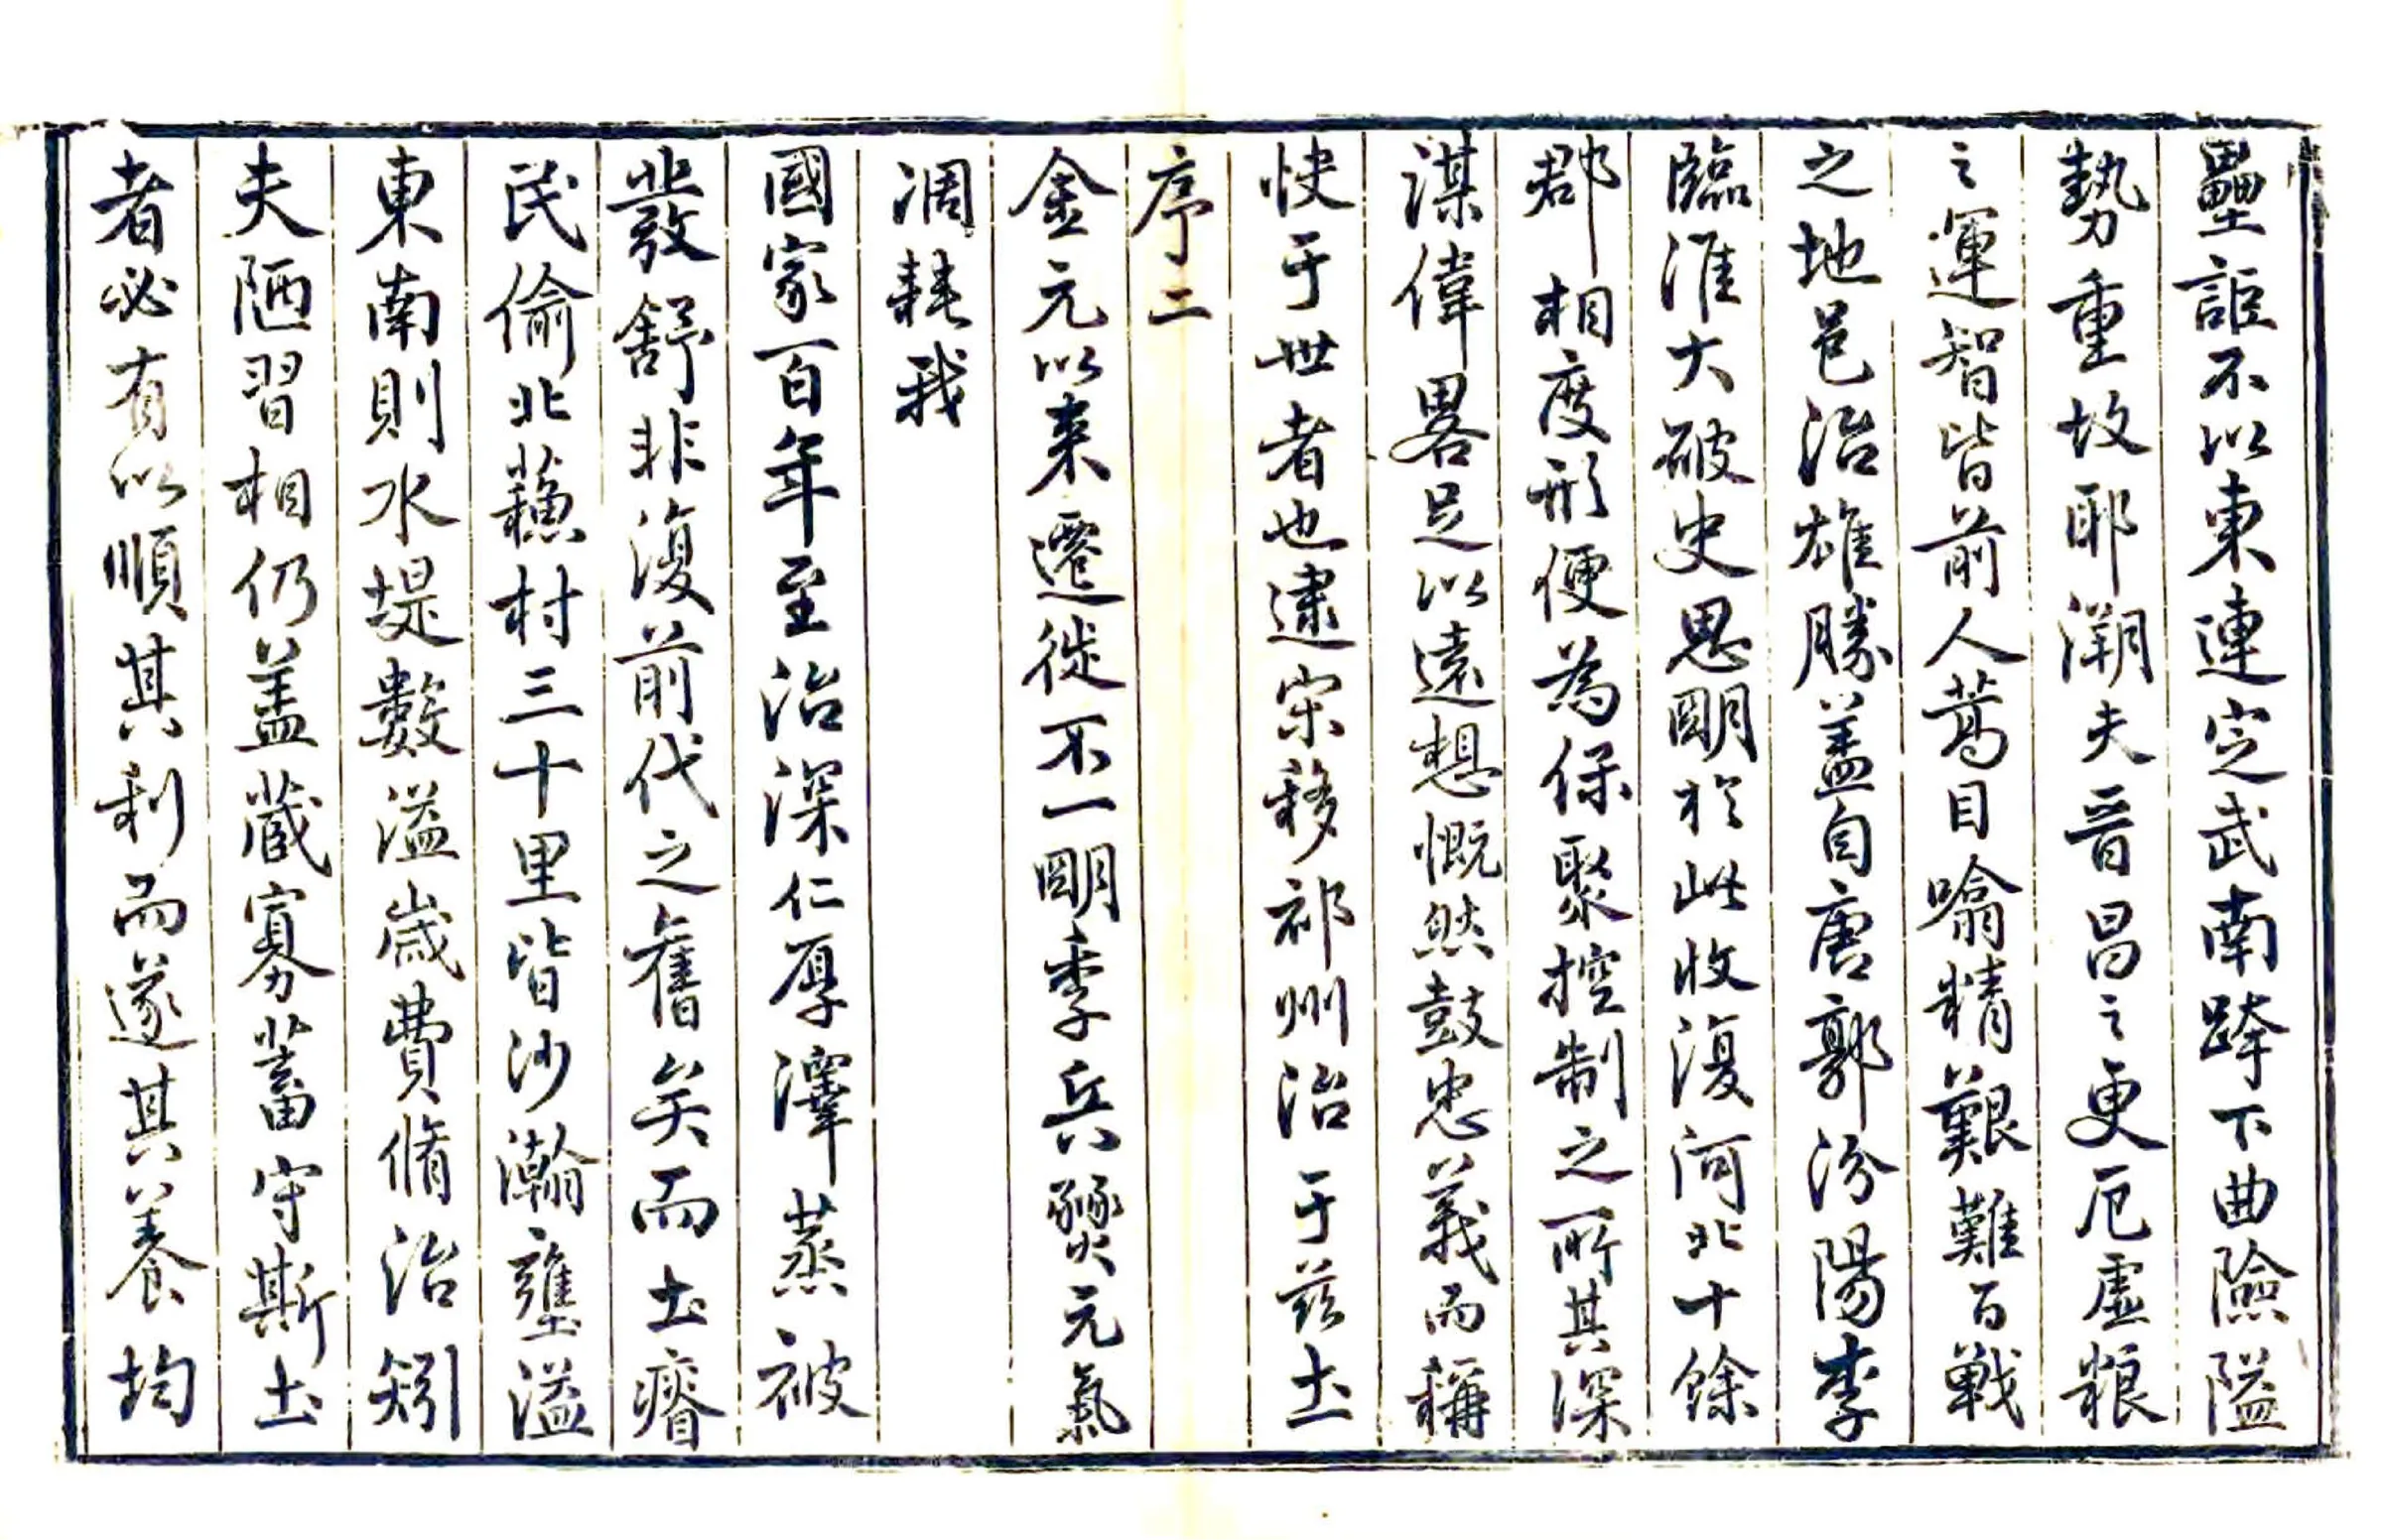 壘詎不以東連定武南跨下曲險隘
勢重故耶溯夫晉昌之更厄虛粮
之運智皆前人蒿目嗡精艱難百戰
之地邑治雄勝盖自唐郭汾陽李
臨淮大破史思明於此收復河北十餘
郡相度形便為保聚控制之所其深
謀偉畧足以遠想慨然鼓忠義而稱
快于世者也逮宋移祁州治于茲土
序二
金元以来遷徙不一明季兵燹元氣
凋耗我
國家百年至治深仁厚澤蒸被
發舒非復前代之舊矣而土瘠
民偷北蘓村三十里皆沙瀚壅溢
東南則水堤數溢歲費脩治矧
夫陋習相仍盖藏寡蓄守斯土
者必有以順其利而遂其養均